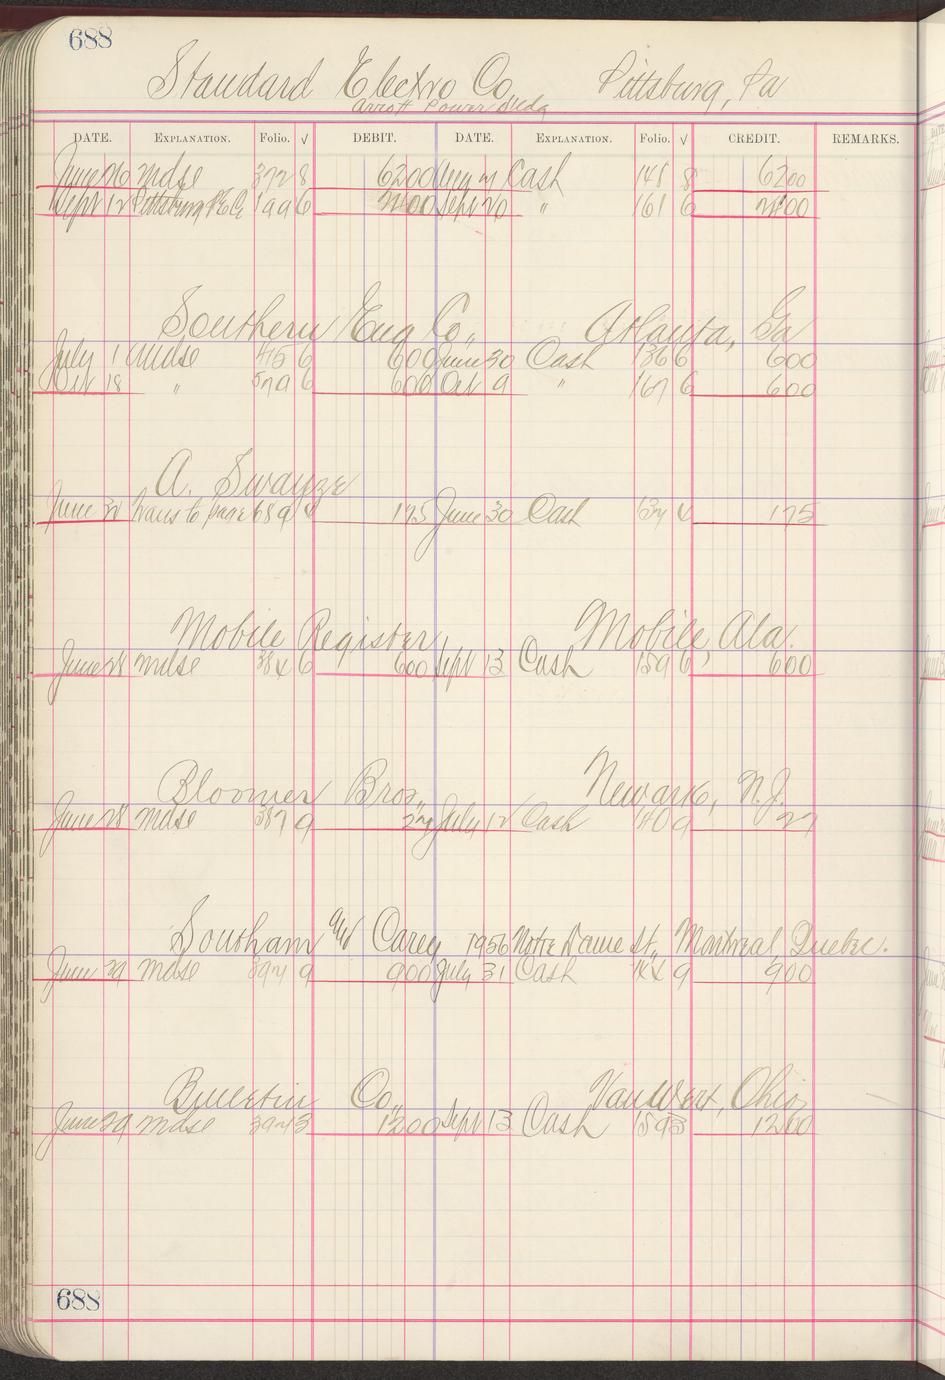 688
Standard Electro Co. Pittsburg, Pa
Arrott Power Bldg
DATE. EXPLANATION. Folio. √ DEBIT. DATE. EXPLANATION. Folio. √ CREDIT. REMARKS.
June 26 Mdse 372 8 6200 Aug Cash 148 8 6200
Sept 12 Pittsburg 199 6 2400 Sept 20 " 161 6 2400
Southern Eng Co., Atlanta, Ga
July 1 Mdse 415 6 600 June 30 Cash 136 6 600
Oct 18 " 579 6 600 Oct 9 " 167 6 600
A. Swayze
June Trans to page 689 4 175 June 30 Cash 137 4 175
Mobile Register Mobile, Ala.
June 28 Mdse 384 6 600 Sept 13 Cash 159 6 600
Bloomer Bros., Newark, N.J.
June 28 Mdse 387 9 27 July 12 Cash 140 9 27
Southam and Carey 1956 Notre Dame St., Montreal, Quebec.
June 29 Mdse 397 9 900 July 31 Cash 144 9 900
Bulletin Co., Van Wert, Ohio
June 29 Mdse 397 3 1200 Sept 13 Cash 159 3 1200
688